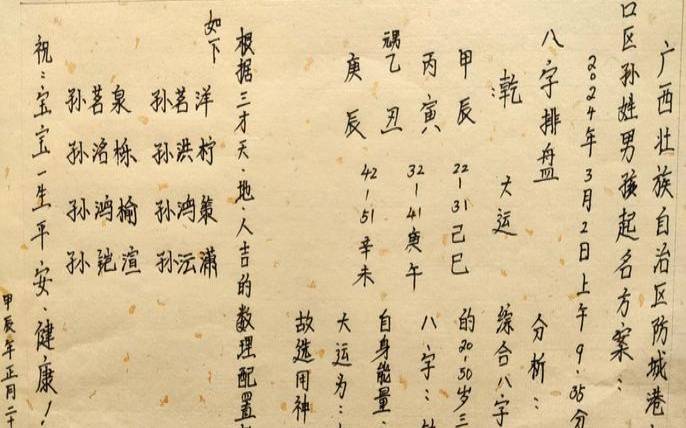 广西壮族自治区防城港
口区孙姓男孩起名方案：
2024年3月2日上午9.35分
八字排盘
分析：
乾
大运
综合八字
甲辰
22-31己巳
的20.50岁三
丙寅
32-41庚午
八字：
乙丑
自身能量
庚辰
42-51辛未
大运为：
故选用神
根据三才天.地.人吉的数理配置
如下
孙茗洋
孙洪柠
孙鸿策
孙沄潇
孙茗泉
孙洺栎
孙鸿榆
孙渲
祝：宝宝一生平安.健康！
甲辰年正月二十